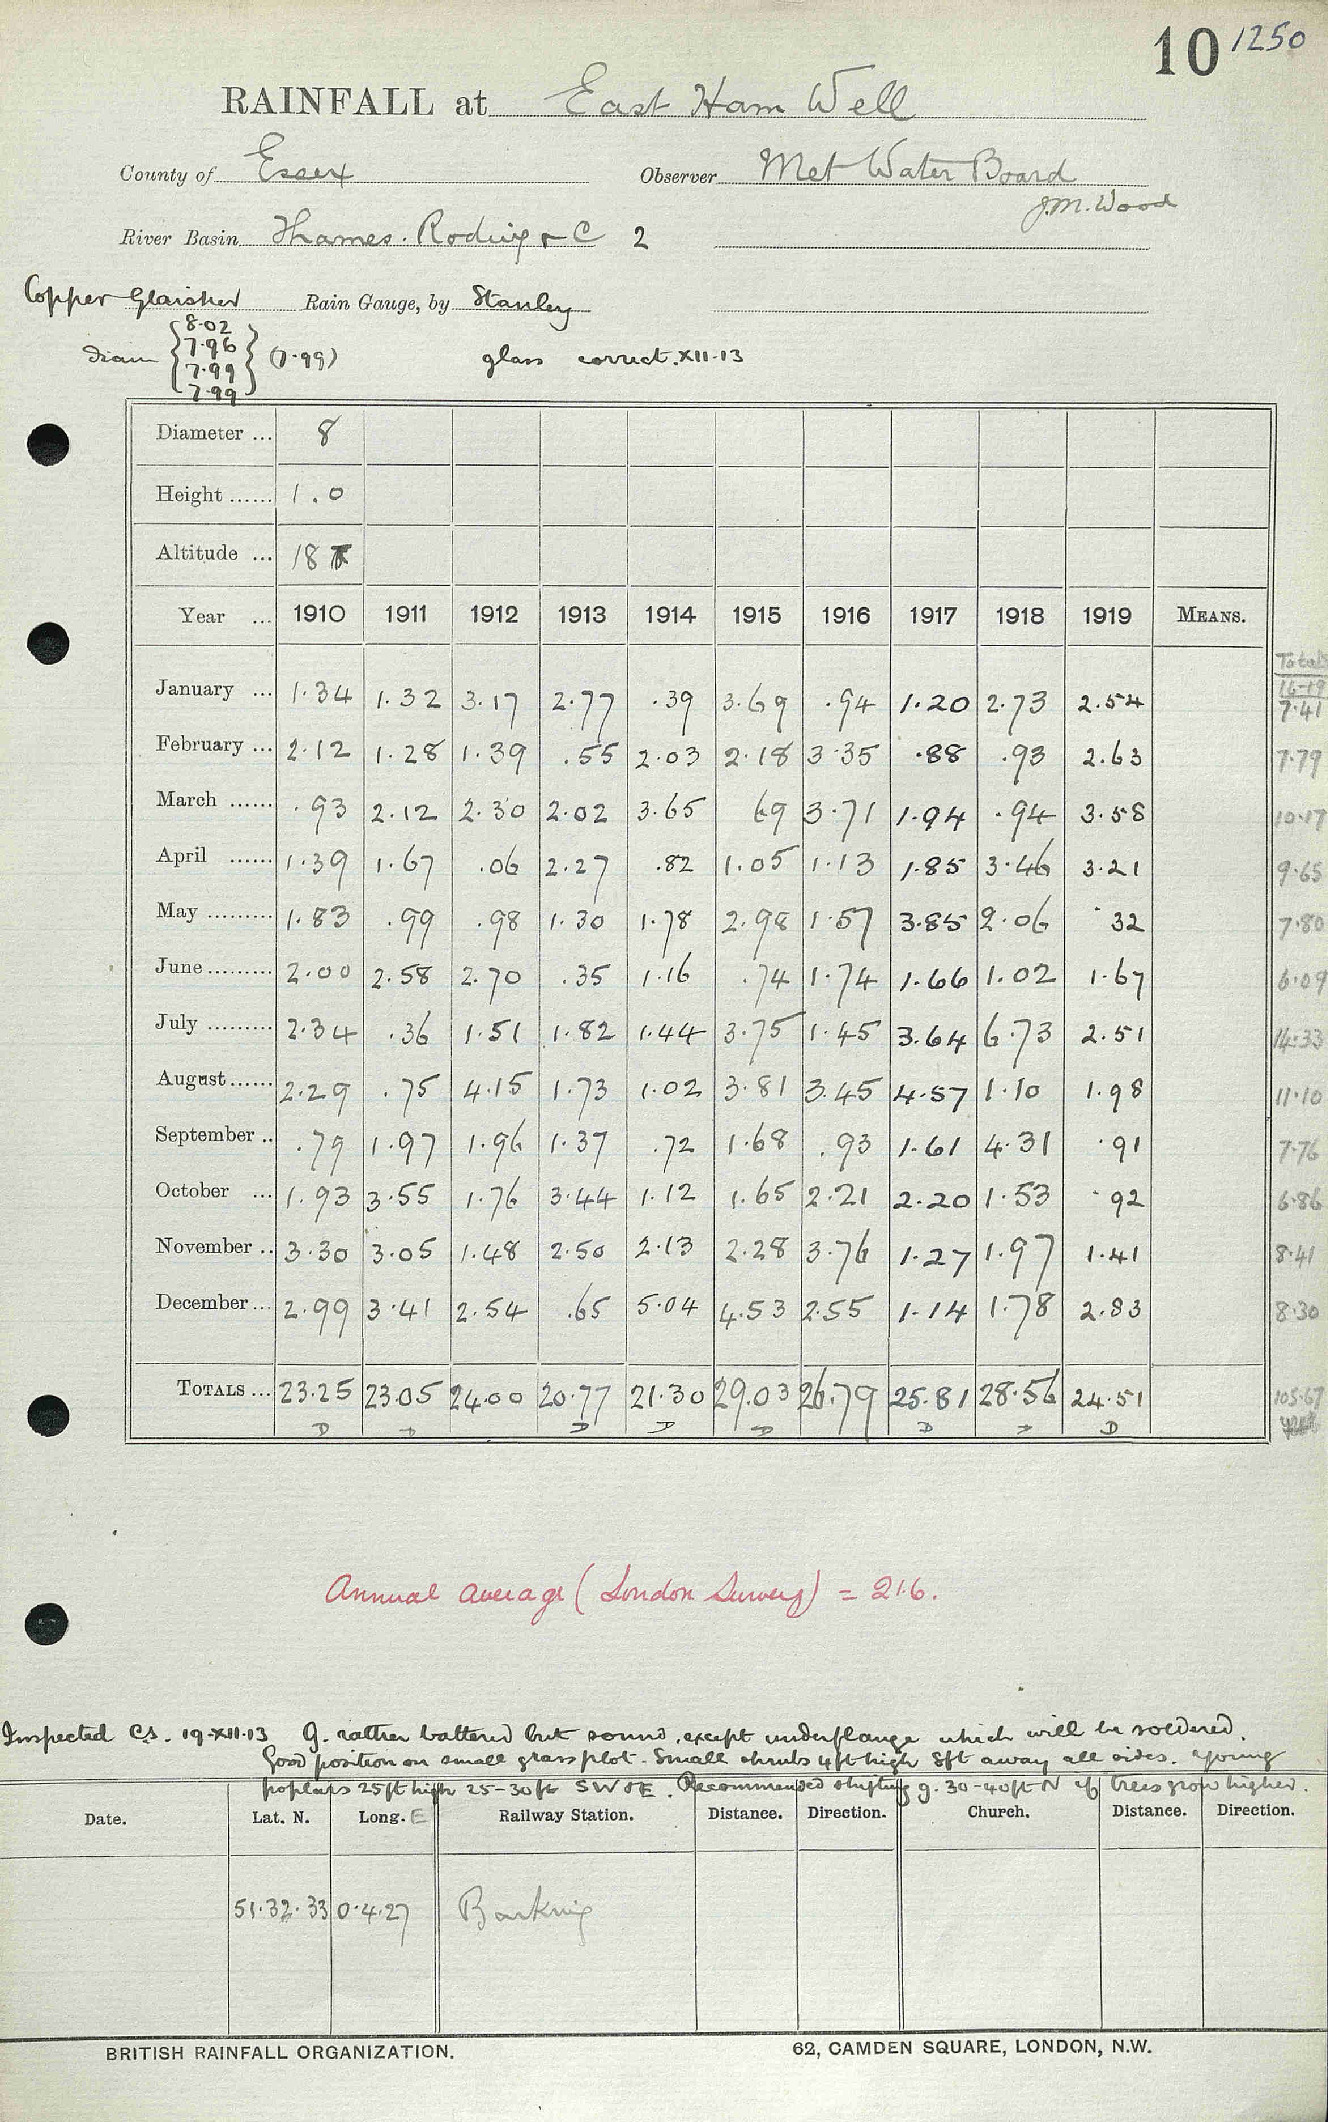 10 1250
RAINFALL at East Ham Well
County of Essex Observer Met Water Board
J.M. Wood
River Basin Thames. Roding & C 2
Copper Glaisher Rain Gauge, by Stanley
diam { 8.02 7.96 7.99 7.99 } (7.99) glass correct. XII.13
Diameter ... 8
Height ...... 1.0
Altitude ... 18
Year ... 1910 1911 1912 1913 1914 1915 1916 1917 1918 1919 MEANS.
Total
14-19
January ... 1.34 1.32 3.17 2.77 .39 3.69 .94 1.20 2.73 2.54 7.41
February ... 2.12 1.28 1.39 .55 2.03 2.18 3.35 .88 .93 2.63 7.79
March ...... .93 2.12 2.30 2.02 3.65 69 3.71 1.94 .94 3.58 10.17
April ...... 1.39 1.67 .06 2.27 .82 1.05 1.13 1.85 3.46 3.21 9.65
May ......... 1.83 .99 .98 1.30 1.78 2.98 1.57 3.85 2.06 .32 7.80
June ......... 2.00 2.58 2.70 .35 1.16 .74 1.74 1.66 1.02 1.67 6.09
July ......... 2.34 .36 1.51 1.82 1.44 3.75 1.45 3.64 6.73 2.51 14.33
August ...... 2.29 .75 4.15 1.73 1.02 3.81 3.45 4.57 1.10 1.98 11.10
September .. .79 1.97 1.96 1.37 .72 1.68 .93 1.61 4.31 .91 7.76
October ... 1.93 3.55 1.76 3.44 1.12 1.65 2.21 2.20 1.53 .92 6.86
November .. 3.30 3.05 1.48 2.50 2.13 2.28 3.76 1.27 1.97 1.41 8.41
December ... 2.99 3.41 2.54 .65 5.04 4.53 2.55 1.14 1.78 2.83 8.30
TOTALS ... 23.25 23.05 24.00 20.77 21.30 29.03 26.79 25.81 28.56 24.51 105.67
D D D D D D D D
Annual average (London Survey) = 21.6.
Inspected CS. 19.XII.13 G. rather battered but sound, except underflange which will be soldered.
Good position on small grass plot. Small shrubs 4ft high 8ft away all sides. Young
poplars 25ft high 25-30ft SW & E. Recommended shifting g. 30-40ft N if trees grow higher.
Date. Lat. N. Long. E Railway Station. Distance. Direction. Church. Distance. Direction.
51.32.33 0.4.27 Barking
BRITISH RAINFALL ORGANIZATION. 62, CAMDEN SQUARE, LONDON, N.W.